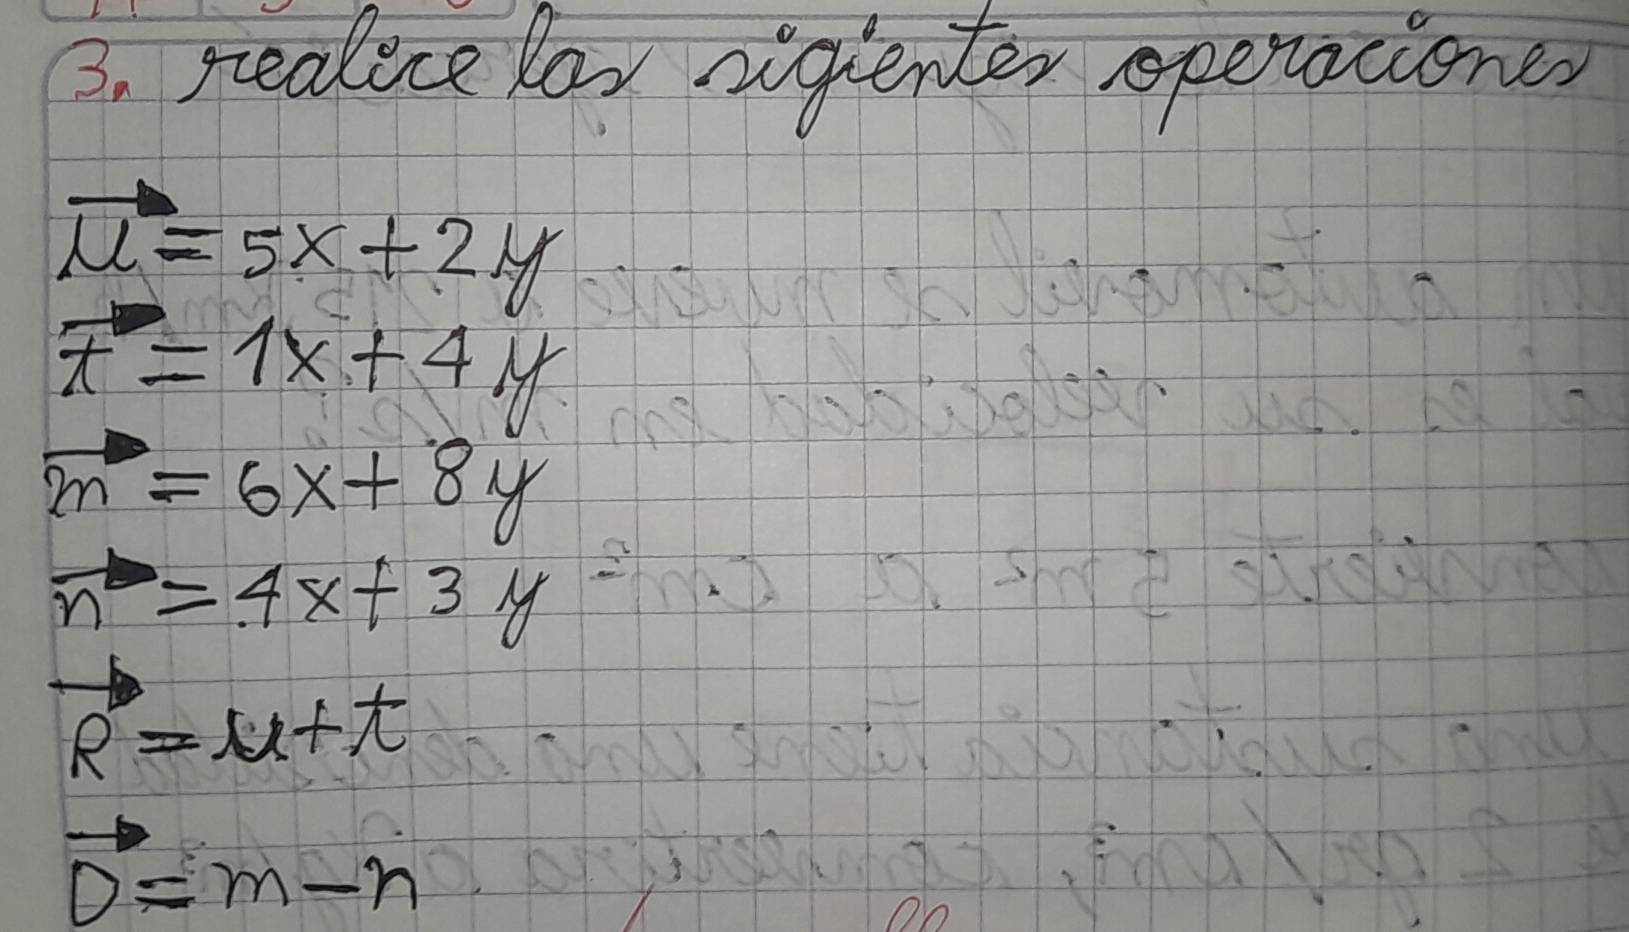 3. realice las sigientes operaciones
u = 5x + 2y
t = 1x + 4y
m = 6x + 8y
n = 4x + 3y
R = u + t
D = m - n